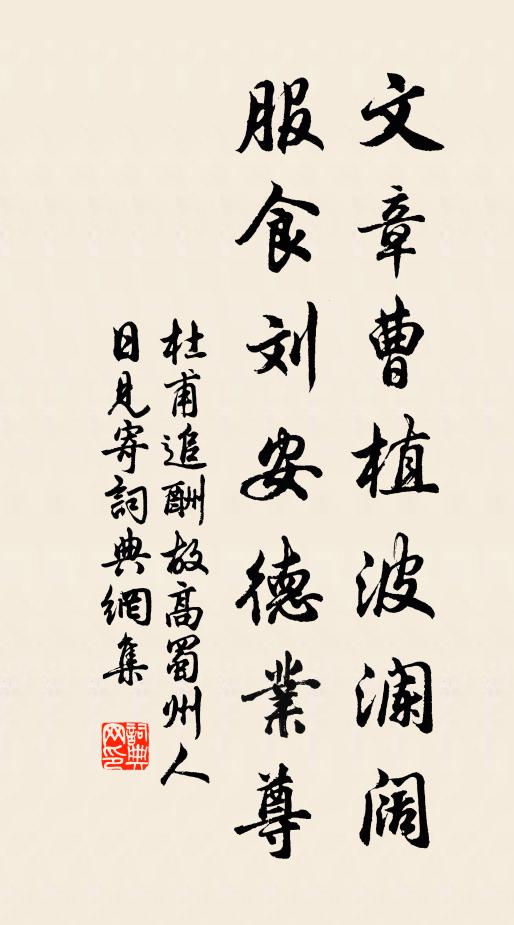 文章曹植波澜阔
服食刘安德業尊
杜甫追酬故高蜀州人
日見寄詞典網集
詞典
网印